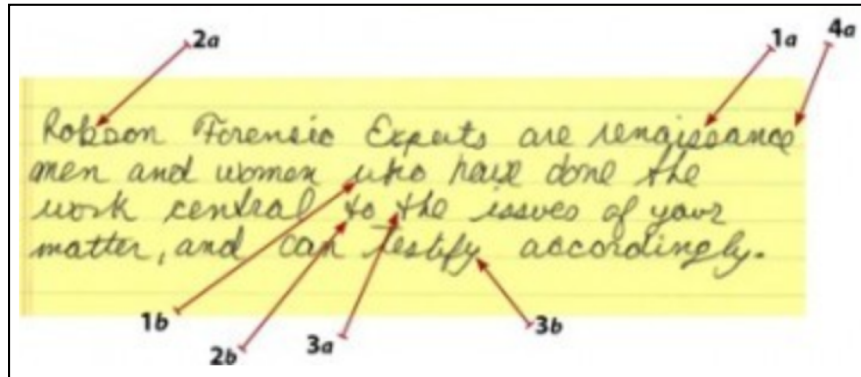 2a 1a 4a
Robson Forensic Experts are renaissance
men and women who have done the
work central to the issues of your
matter, and can testify accordingly.
1b 2b 3a 3b